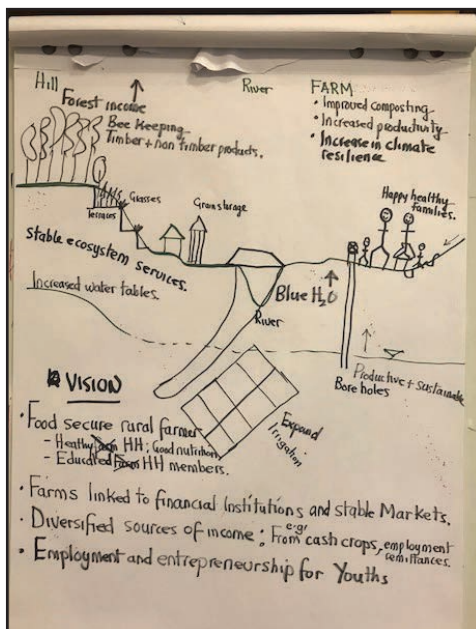 Hill
River
FARM
Forest income
Bee Keeping
Timber + non timber products.
• Improved composting
• Increased productivity
• Increase in climate
resilience
Grasses
Terraces
Grain storage
Happy healthy
families.
Stable ecosystem services.
Increased water tables.
Blue H2O
River
Productive + sustainable
Bore holes
VISION
Expand
Irrigation
• Food secure rural farmers
- Healthy HH; Good nutrition
- Educated HH members.
• Farms linked to financial Institutions and stable Markets.
• Diversified sources of income: e.g. From cash crops, employment
remittances.
• Employment and entrepreneurship for Youths